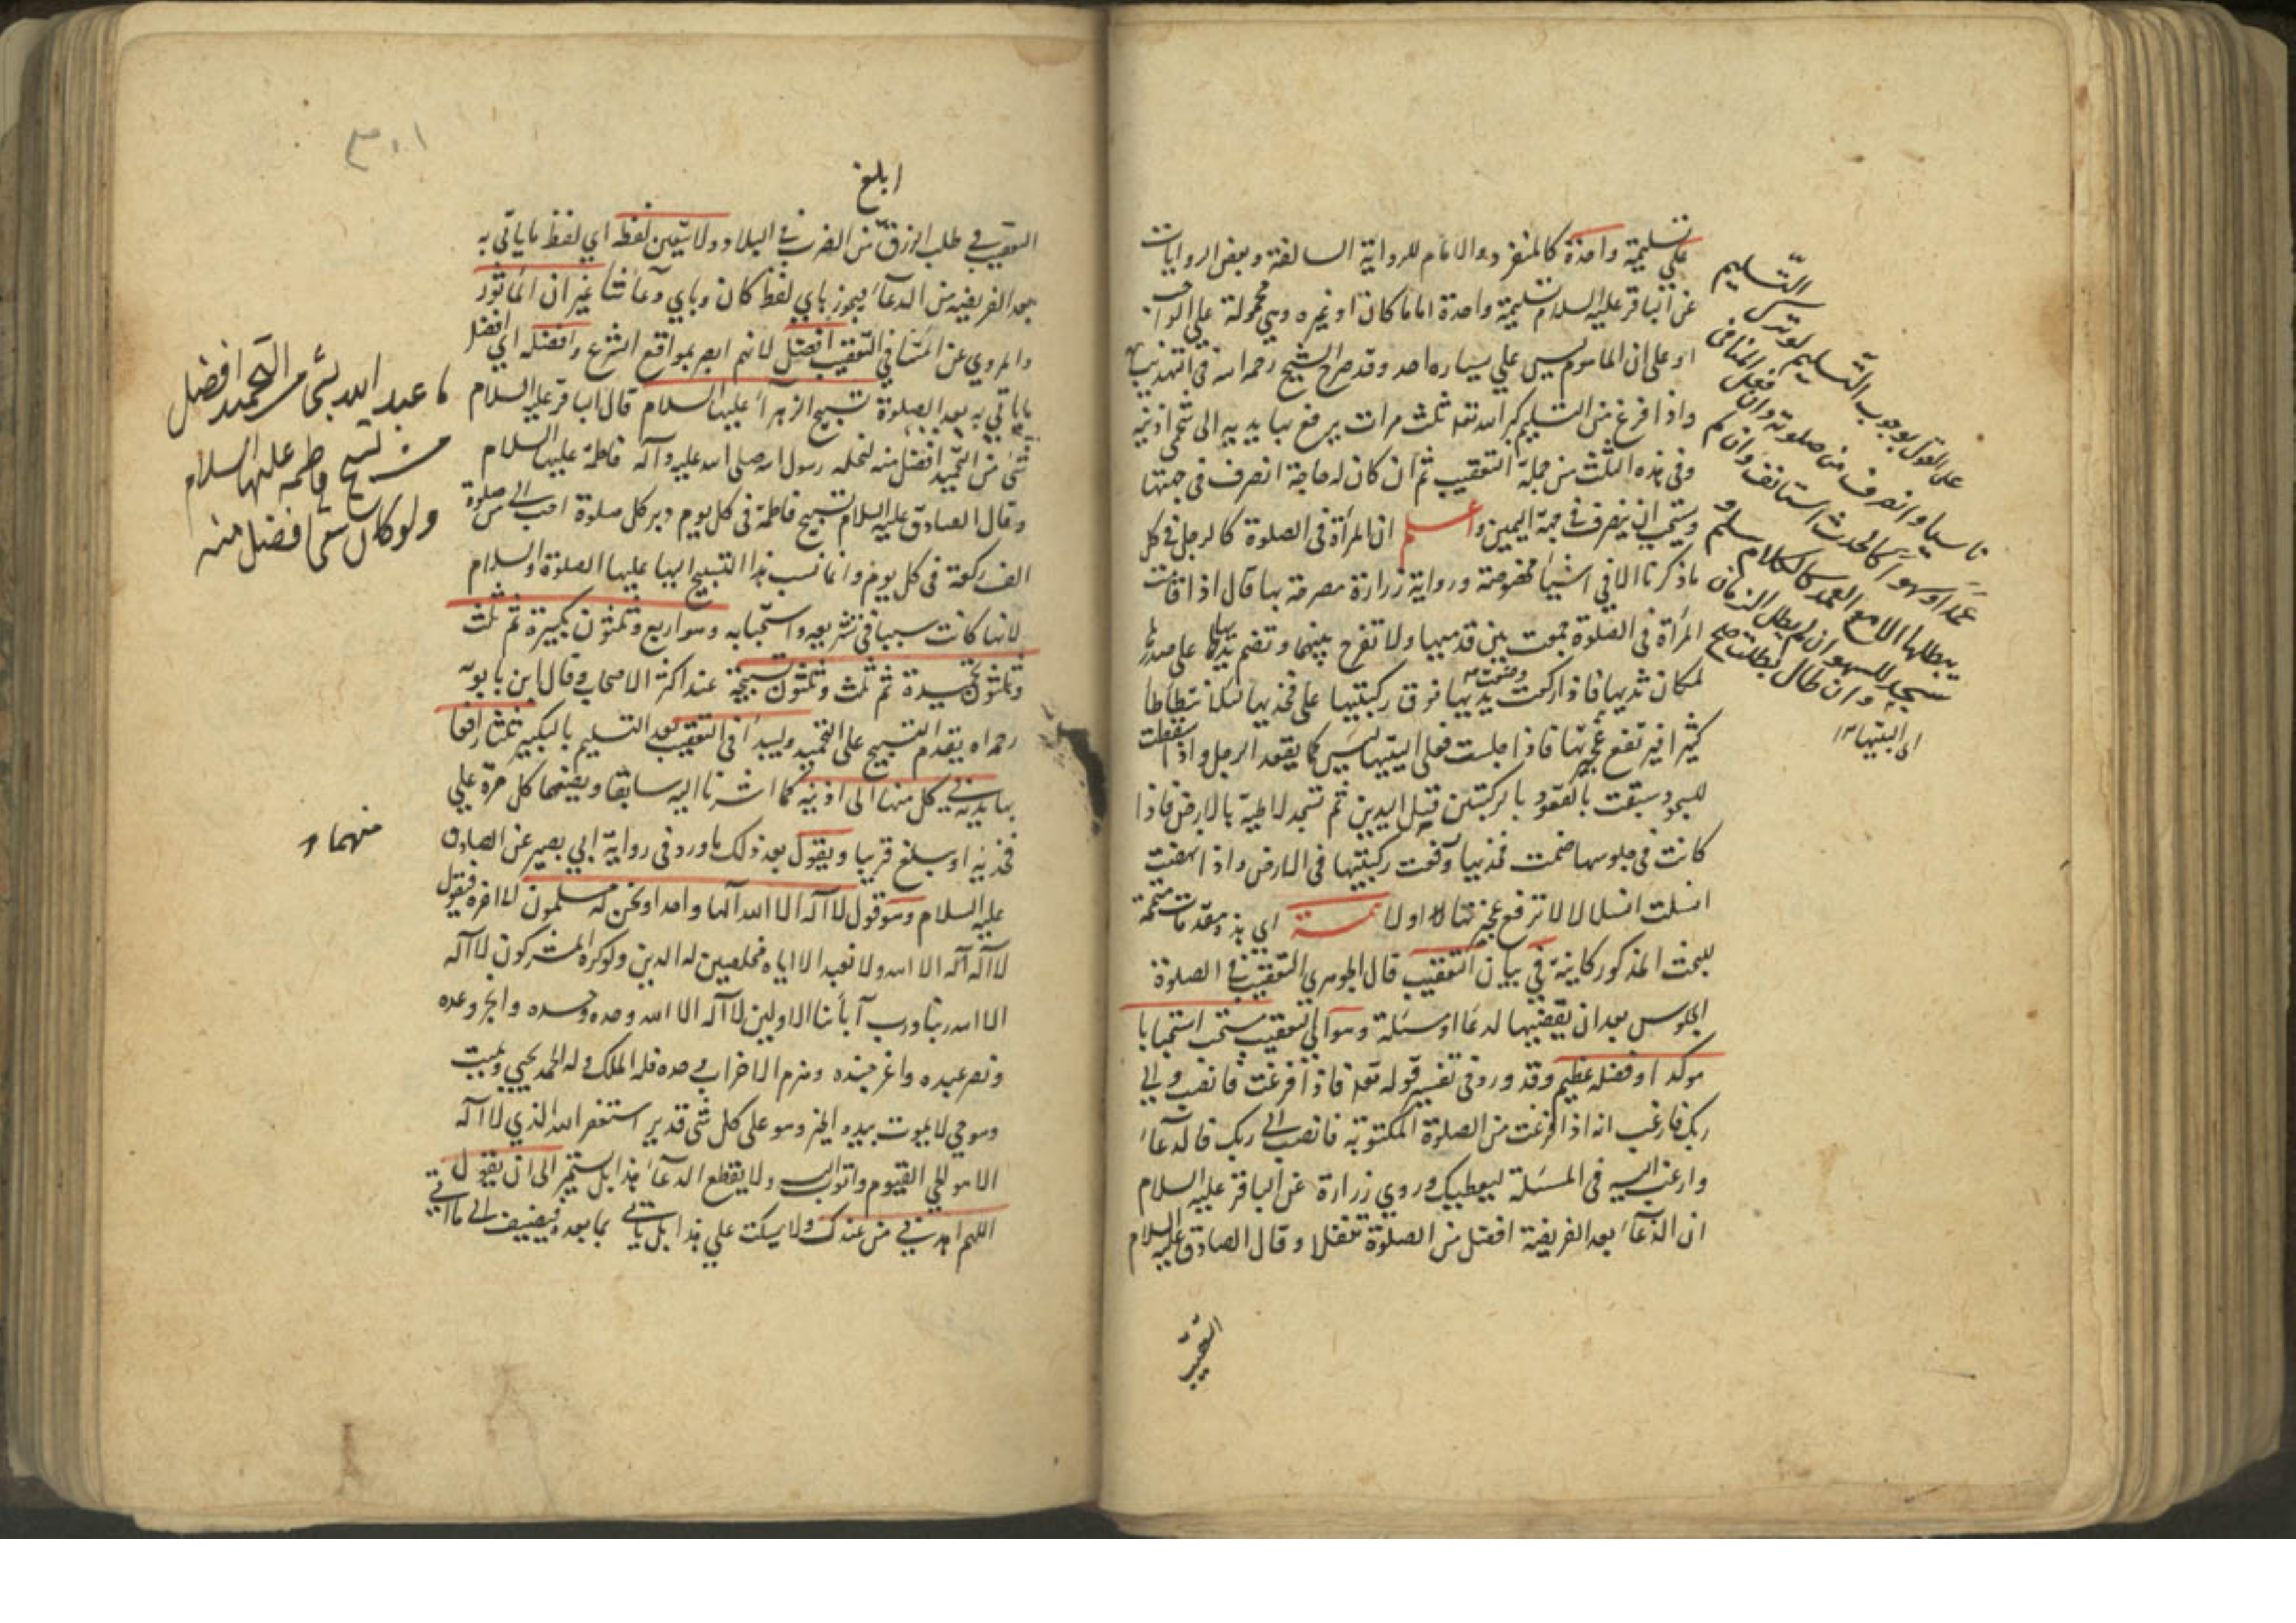 علي تسليمة واحدة كالمنفرد والامام للرواية السالفة وبعض الروايات
عن الباقر عليه السلام تسليمة واحدة اماما كان او غيره وهي محمولة علي الواجب
او علي ان الماموم ليس علي يساره احد وقد صرح الشيخ رحمه الله في التهذيب
واذا فرغ من التسليم كبر الله تعه ثلث مرات يرفع بها يديه الى شحمتي اذنيه
وفي هذه الثلث من جملة التعقيب ثم ان كان له حاجة انصرف في جهتها
ويستحب ان ينصرف في جهة اليمين واعلم ان المرأة في الصلوة كالرجل في كل
ماذكرنا الا في اشياء مخصوصة ورواية زرارة مصرحة بها قال اذا قامت
المرأة في الصلوة جمعت بين قدميها ولا تفرج بينهما وتضم يديها على صدرها
لمكان ثدييها فاذا ركعت وضعت يديها فوق ركبتيها على فخذيها لئلا تتطاطا
كثيرا فيرتفع عجيزتها فاذا جلست فعلى اليتيها ليس كما يقعد الرجل واذا سقطت
للسجود سبقت بالقعود بالركبتين قبل اليدين ثم تسجد لاطية بالارض فاذا
كانت في جلوسها ضمت فخذيها ورفعت ركبتيها في الارض واذا نهضت
انسلت انسلالا لا ترفع عجيزتها اولا تتمة اي هذه مقدمات متممة
للبحث المذكور كاينة في بيان التعقيب قال الجوهري التعقيب في الصلوة
الجلوس بعد ان يقضيها لدعاء او مسئلة وهو اي التعقيب مستحب استحبابا
موكدا وفضله عظيم وقد ورد في تفسير قوله تعه فاذا فرغت فانصب والي
ربك فارغب انه اذا فرغت من الصلوة المكتوبة فانصب الى ربك في الدعاء
وارغب اليه في المسئلة ليعطيك وروي زرارة عن الباقر عليه السلام
ان الدعاء بعد الفريضة افضل من الصلوة تنفلا وقال الصادق عليه السلام
التسليم
على القول بوجوب التسليم لو ترك
ناسيا وانصرف من صلوته وان فعل المنافى
عمدا وسهوا كالحدث استانف وان لم
يبطلها الا مع العمد كالكلام سلم و
سجد للسهو ان لم يطل الزمان
وان طال بطلت
اى اليتيها
التعقيب
ابلغ
التعقيب في طلب الرزق من الضرب في البلاد ولا يتعين لفظ اي لفظ ماياتي به
بعد الفريضة من الدعاء فيجوز باي لفظ كان وباي دعاء شاء غير ان الماثور
والمروي عن ائمتنا في التعقيب افضل لانهم ابصر بمواقع الشرع وافضله اي افضل
ماياتي به بعد الصلوة تسبيح الزهراء عليها السلام قال الباقر عليه السلام
شئ من التحميد افضل منه لنحله رسول الله صلى الله عليه وآله فاطمة عليها السلام
وقال الصادق عليه السلام تسبيح فاطمة في كل يوم دبر كل صلوة احب الي من صلوة
الف ركعة في كل يوم وانما نسب هذا التسبيح اليها عليها الصلوة والسلام
لانها كانت سببا في تشريعه واستحبابه وهو اربع وثلثون تكبيرة ثم ثلث
وثلثون تحميدة ثم ثلث وثلثون تسبيحة عند اكثر الاصحاب وقال ابن بابويه
رحمه الله يقدم التسبيح على التحميد ويبدأ في التعقيب بعد التسليم بالتكبير ثلثا رافعا
بها يديه في كل منها الى اذنيه كما اشرنا اليه سابقا ويضعهما كل مرة علي
فخذيه او يبلغ قريبا ويقول بعد ذلك ماورد في رواية ابي بصير عن الصادق
عليه السلام وهو قول لا اله الا الله آلها واحدا ونحن له مسلمون لا اخره فيقول
لا اله الا الله ولا نعبد الا اياه مخلصين له الدين ولو كره المشركون لا اله
الا الله ربنا ورب آبائنا الاولين لا اله الا الله وحده وحده وحده وانجز وعده
ونصر عبده واعز جنده وهزم الاحزاب وحده فله الملك وله الحمد يحيي ويميت
وهو حي لا يموت بيده الخير وهو على كل شئ قدير استغفر الله الذي لا اله
الا هو الحي القيوم واتوب اليه ولا يقطع الدعاء بهذا بل يستمر الى ان يقول
اللهم اهدني من عندك ولا يسكت علي هذا بل ياتي بما بعده فيضيف الى ما
ما عبد الله بشئ من التحميد افضل
من تسبيح فاطمه عليها السلام
ولو كان شئ افضل منه
منهما